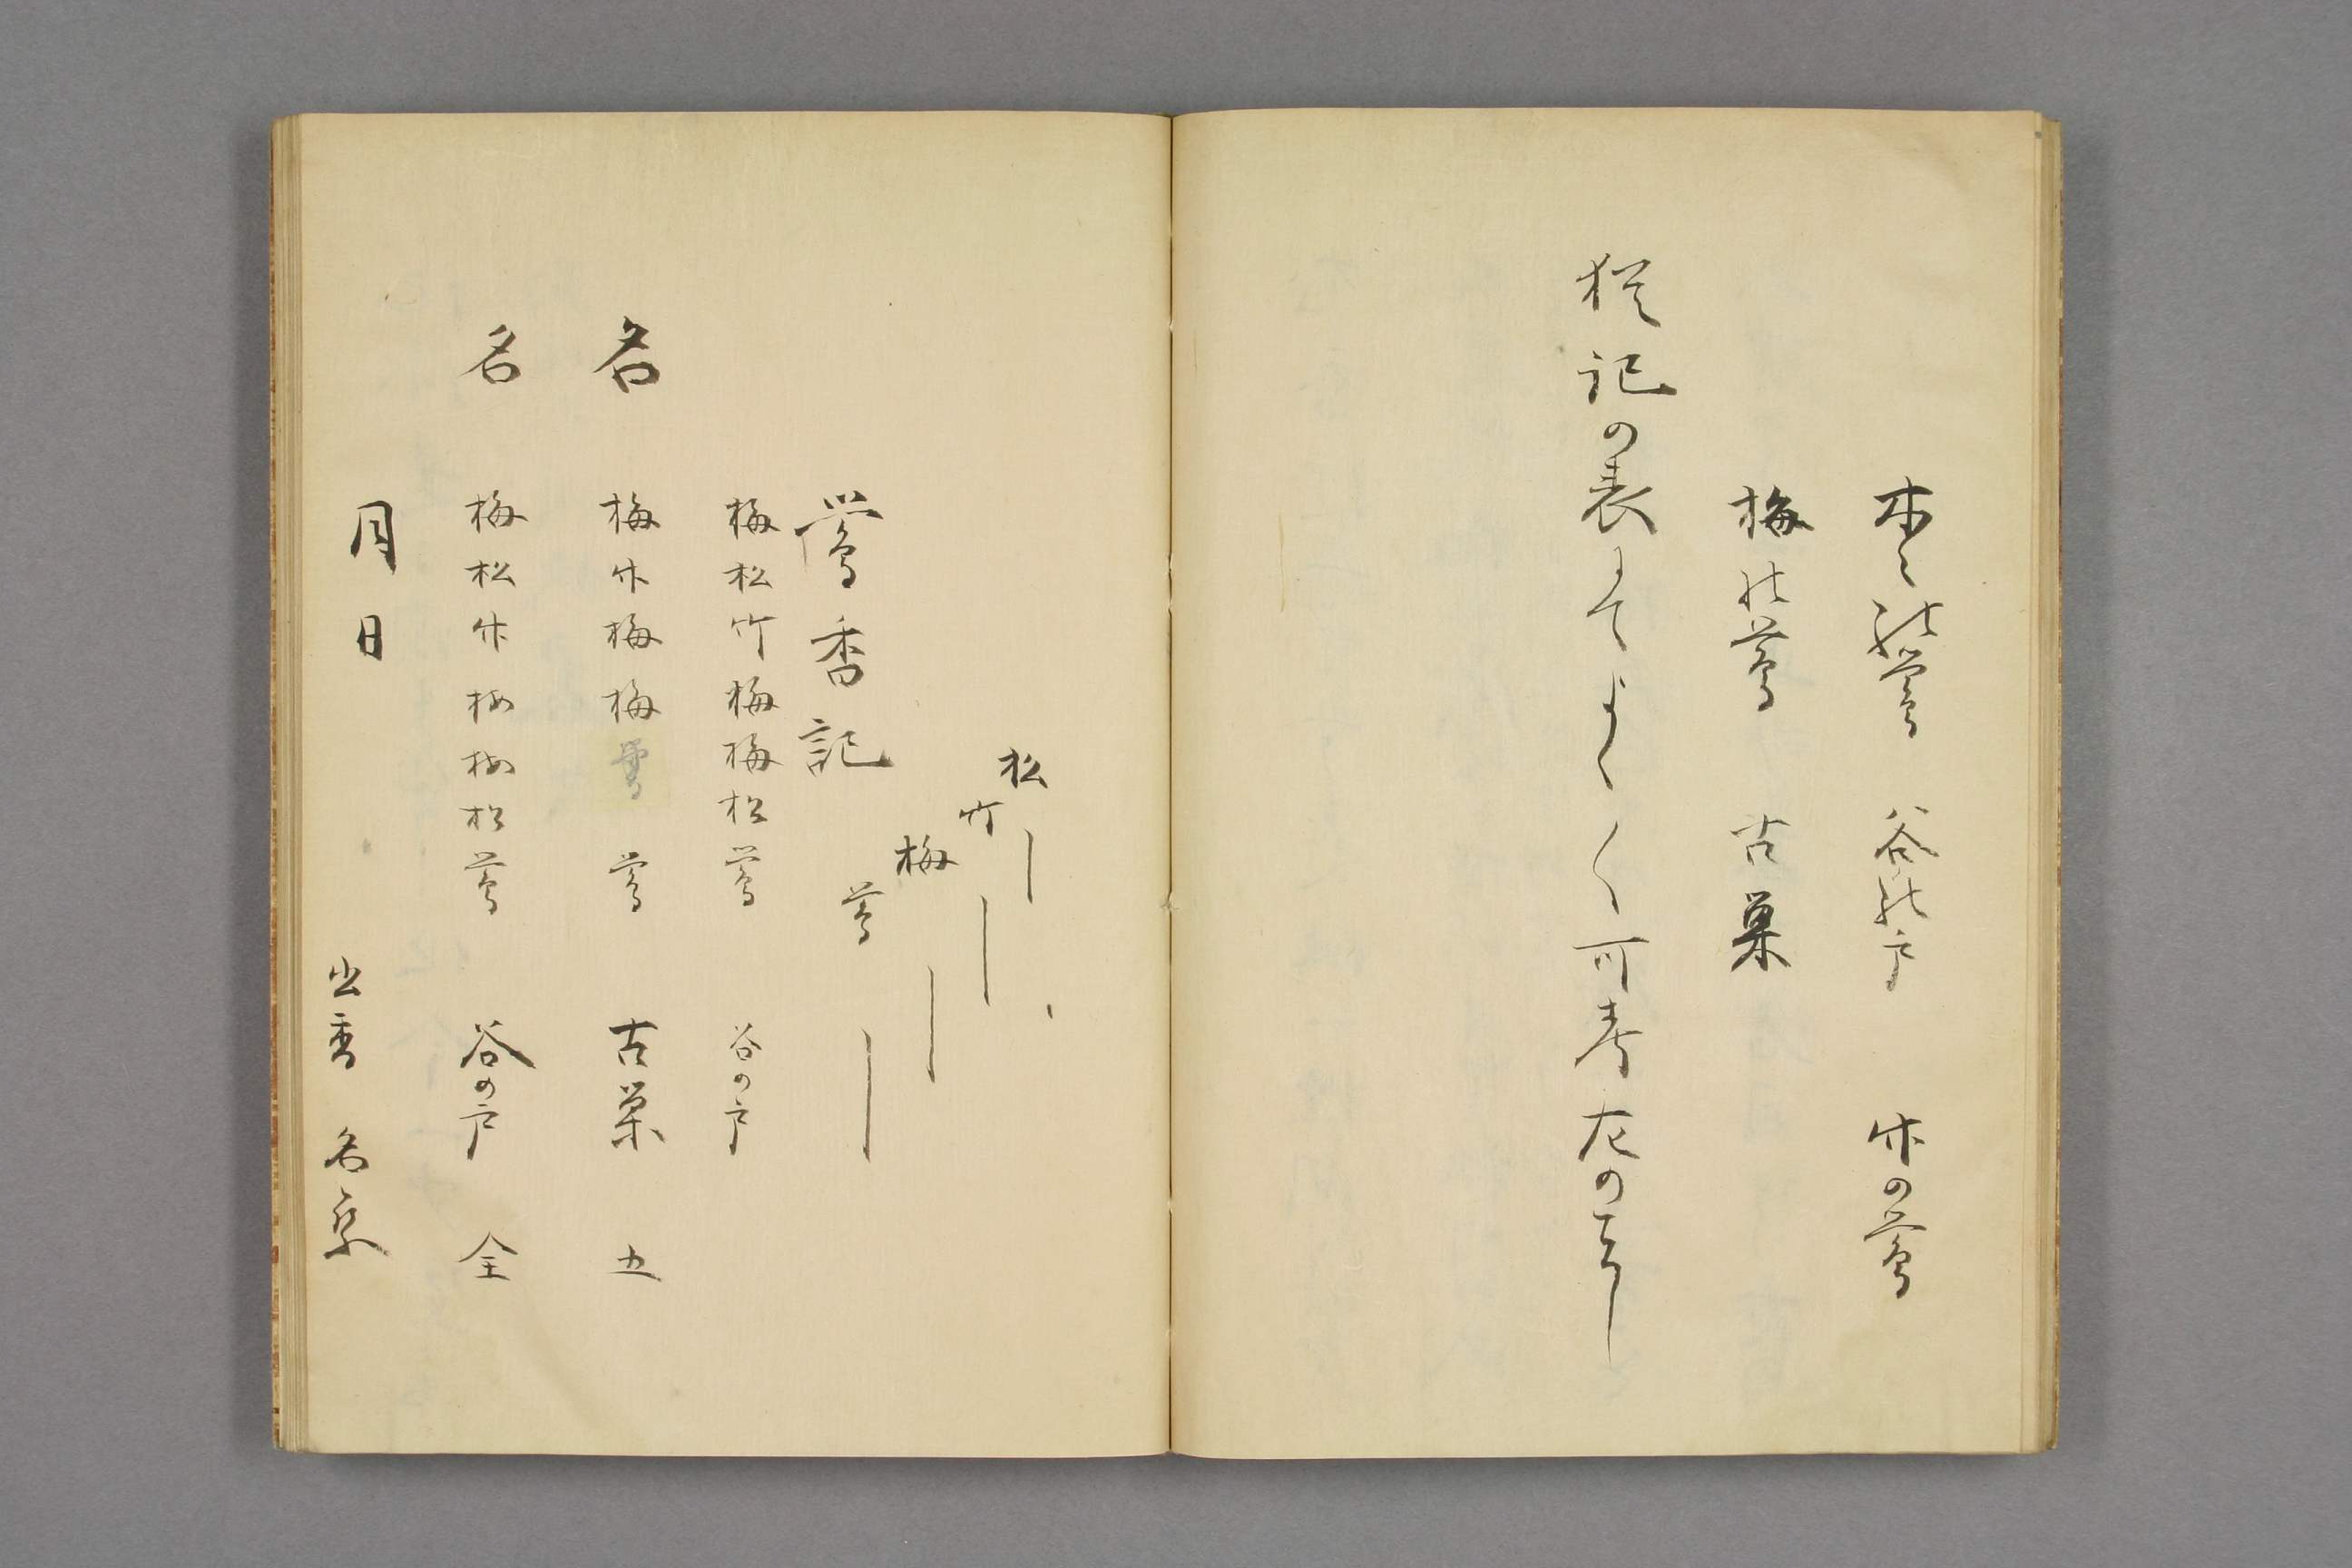 木々の鶯 谷の戸 竹の鶯
梅の鶯 古巣
猶記の表にてよく〳〵可考左のことし
松
竹
梅
鶯
鶯香記
梅松竹梅梅松鶯 谷の戸
名 梅竹梅梅 鶯 古巣 五
名 梅松竹梅梅松鶯 谷の戸 全
月日
出香 名乗